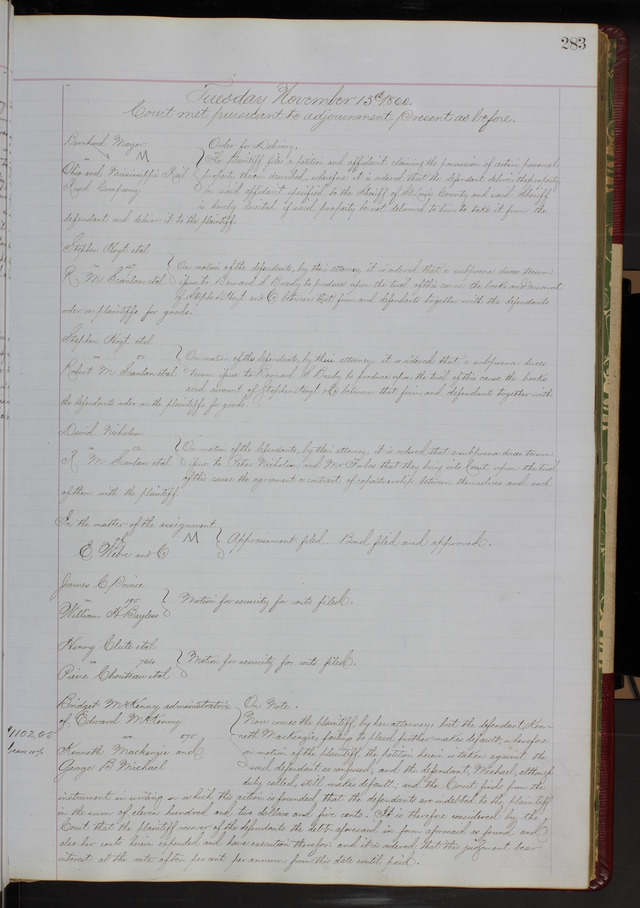 283
Tuesday November 13th 1860.
Court met pursuant to adjournment present as before.
Mayor Order for Delivery.
vs The plaintiff files a petition and affidavit claiming the possession of certain personal
Ohio and Mississippi Rail property therein described, wherefore it is ordered that the defendant deliver the property
Road Company in said affidavit specified to the Sheriff of St Louis County and said Sheriff
is hereby directed if said property be not delivered to him to take it from the
defendant and deliver it to the plaintiff.
Stephen Hoyt et al
vs On motion of the defendants, by their attorney, it is ordered that a subpoena duces tecum
R M Scanlan et al issue to Barnard S Brady to produce upon the trial of this cause the books and account
of Stephen Hoyt and C between that firm and defendants together with the defendants
order on plaintiffs for goods.
Stephen Hoyt et al
vs On motion of the defendants, by their attorney, it is ordered that a subpoena duces
Robert M Scanlan et al tecum issue to Barnard S Brady to produce upon the trial of this cause the books
and account of Stephen Hoyt & C between that firm and defendants together with
the defendants order on the plaintiffs for goods.
David Nicholson
vs On motion of the defendants, by their attorney, it is ordered that a subpoena duces tecum
R M Scanlan et al issue to Peter Nicholson and Mr Forbes that they bring into Court upon the trial
of this cause the agreement or contract of copartnership between themselves and each
of them with the plaintiff.
In the matter of the assignment
of Appraisment filed. Bond filed and approved.
E Wehe and C
James C Prince
vs Motion for security for costs filed.
William H Bayless
Henry Clute et al
vs Motion for security for costs filed.
Pierre Chouteau et al
Bridget McKenny administratrix On Note.
of Edward McKenny Now comes the plaintiff, by her attorney, but the defendant, Ken-
$1102,05 neth Mackenzie, failing to plead further makes default; wherefore
bears 10% vs on motion of the plaintiff, the petition herein is taken against the
Kenneth Mackenzie and said defendant as confessed; and the defendant, Michael, although
George B Michael duly called, still makes default; and the Court finds from the
instrument in writing on which this action is founded, that the defendants are indebted to the plaintiff
in the sum of eleven hundred and two dollars and five cents. It is therefore considered by the
Court that the plaintiff recover of the defendants the debt aforesaid in form aforesaid so found and
also her costs herein expended and have execution therefor: and it is ordered that this judgment bear
interest at the rate of ten per cent per annum from this date until paid.